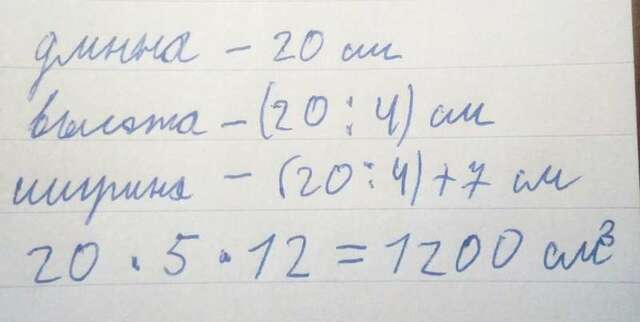 длинна – 20 см
высота – (20 : 4) см
ширина – (20 : 4) + 7 см
20 · 5 · 12 = 1200 см³